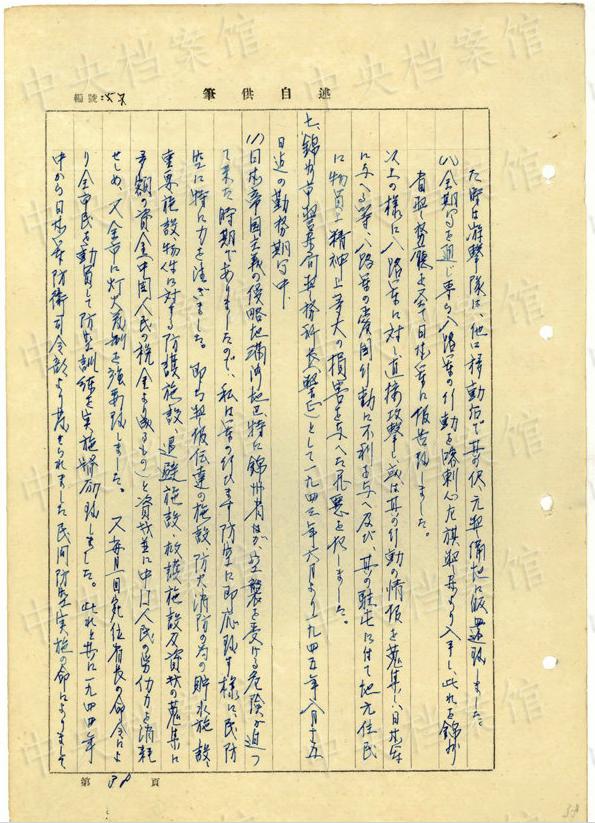 述自供筆
編號:57
た時は遊撃隊は、他に移動后で其の伏元 警備地に仮還致しました。
(八)全期間を通じ専ら八路軍の行動を喀喇心左旗警察より入手し、此れを錦州
省警務廳と全て日本軍に仮告致しました。
以上の様に八路軍に対し直接攻撃し、或は其の行動の情報を蒐集し、日本軍
に与へる等、八路軍の愛国行動に不利を与へ及び其の駐屯に付て地元住民
に物質上精神上多大の損害を与へた罪悪を犯しました。
七、錦州市警察局警務科長(警正)として一九四三年六月より一九四五年八月十五
日迄の勤務期間中、
(1)日本帝国主義の侵略地満洲地区、特に錦州省はが空襲を受ける危険が迫つ
て来た時期でありましたので、私は軍の行ひます防空に即応致す様に民防
空に特に力を注ぎました。即ち 警報伝達の施設、防火消防の為の貯水施設、
重要施設物件に対する防護施設、退避施設、救護施設及資材の蒐集に
多額の資金(中国人民の税金より成るもの)と資材並に中国人民の労働力を消耗
せしめ、又全市に灯火管制を強要致しました。又毎月一回宛位省長の命令によ
り全市民を動員して防空訓練を実施 致しました。此れと共に一九四四年
中から日本軍防衛司令部より発せられました民間防空実施の命によりまして
第38頁
中央档案馆